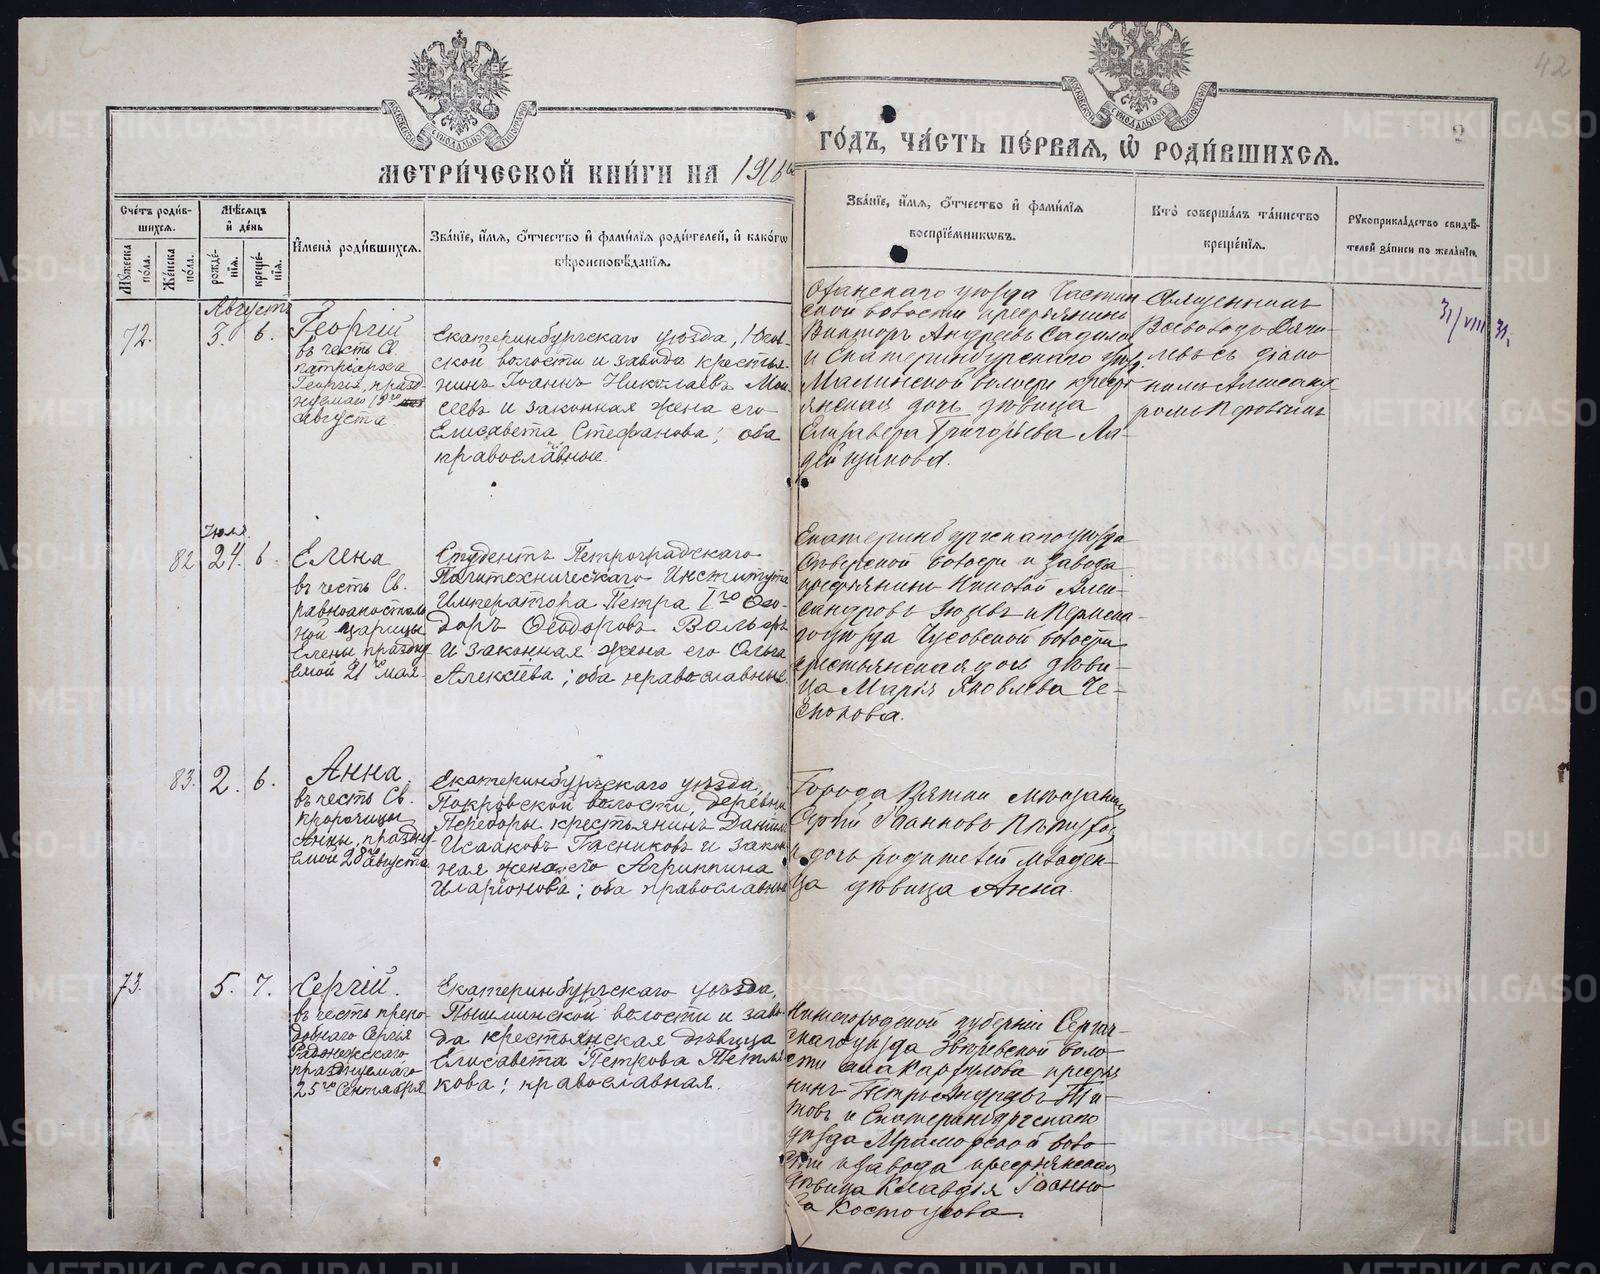 42
2
МЕТРИ́ЧЕСКОЙ КНИ́ГИ НА 1916й
ГО́ДЪ, ЧА́СТЬ ПЕ́РВАЯ, Ѡ РОДИ́ВШИХСЯ.
Сче́тъ роди́в-
шихся.
Му́жеска
по́ла.
Же́нска
по́ла.
Мѣ́сяцъ
и де́нь
рожде́-
нія.
креще́-
нія.
Имена̀ роди́вшихся.
Зва́ніе, и́мя, о́тчество и фами́лія роди́телей, и како́гѡ
вѣроисповѣ́данія.
Зва́ніе, и́мя, о́тчество и фами́лія
воспріе́мниковъ.
Кто̀ соверша́лъ та́инство
креще́нія.
Рукоприкла́дство свидѣ́-
телей за́писи по жела́нію.
Августъ
72.
3.
6.
Георгій
въ честь Св
патріарха
Георгія, празд-
нуемаго 18го
августа.
Екатеринбургскаго уѣзда,
ской волости и завода крестья-
нинъ Іоаннъ Николаевъ Мои
сеевъ и законная жена его
Елисавета Стефанова; оба
православные.
Оханскаго уѣзда Частин
ской волости крестьянинъ
Викторъ Андреевъ
и Екатеринбургскаго уѣзд.
волости крест
янская дочь дѣвица
Елизавета Григорьева Ла-
дейщикова.
Священникъ
Всеволодъ
съ діако
номъ Алексан
ромъ
31/VIII 31.
Іюля
82
24.
6.
Елена
въ честь Св.
равноапостоль
ной царицы
Елены праздну
емой 21 мая
Студентъ Петроградскаго
Политехническаго Института
Императора Петра Iго Ѳео-
доръ Ѳеодоровъ Вольфъ
и законная жена его Ольга
Алексіева; оба православные.
Екатеринбургскаго уѣзда
Сѣверской волости и завода
крестьянинъ Алек-
сандровъ и Пермска-
го уѣзда Чусовской волости
крестьянская дочь дѣви-
ца Марія Яковлева Че-
снокова.
83.
2.
6.
Анна.
въ честь Св.
пророчицы
Анны, празну-
емой 28го августа
Екатеринбургскаго уѣзда,
Покровской волости, деревни
Переборы крестьянинъ Даніилъ
Исааковъ Пасниковъ и закон
ная жена его Агриппина
Иларіонова; оба православные
Города Вятки мѣщанинъ
и дочь родителей младен-
ца дѣвица Анна.
73.
5.
7.
Сергій.
въ честь препо-
добнаго Сергія
Радонежскаго
празднуемаго
25го Сентября
Екатеринбургскаго уѣзда,
Пышминской волости и заво-
да крестьянская дѣвица
Елисавета Петрова Петля
кова; православная.
Нижегородской губерніи Сергач-
скаго уѣзда воло-
сти села крестья
нинъ Петръ Андреевъ Ти-
товъ и Екатеринбургскаго
уѣзда Мраморской воло
сти и завода крестьянская
дѣвица Клавдія Іоанно
ва Костоусова.